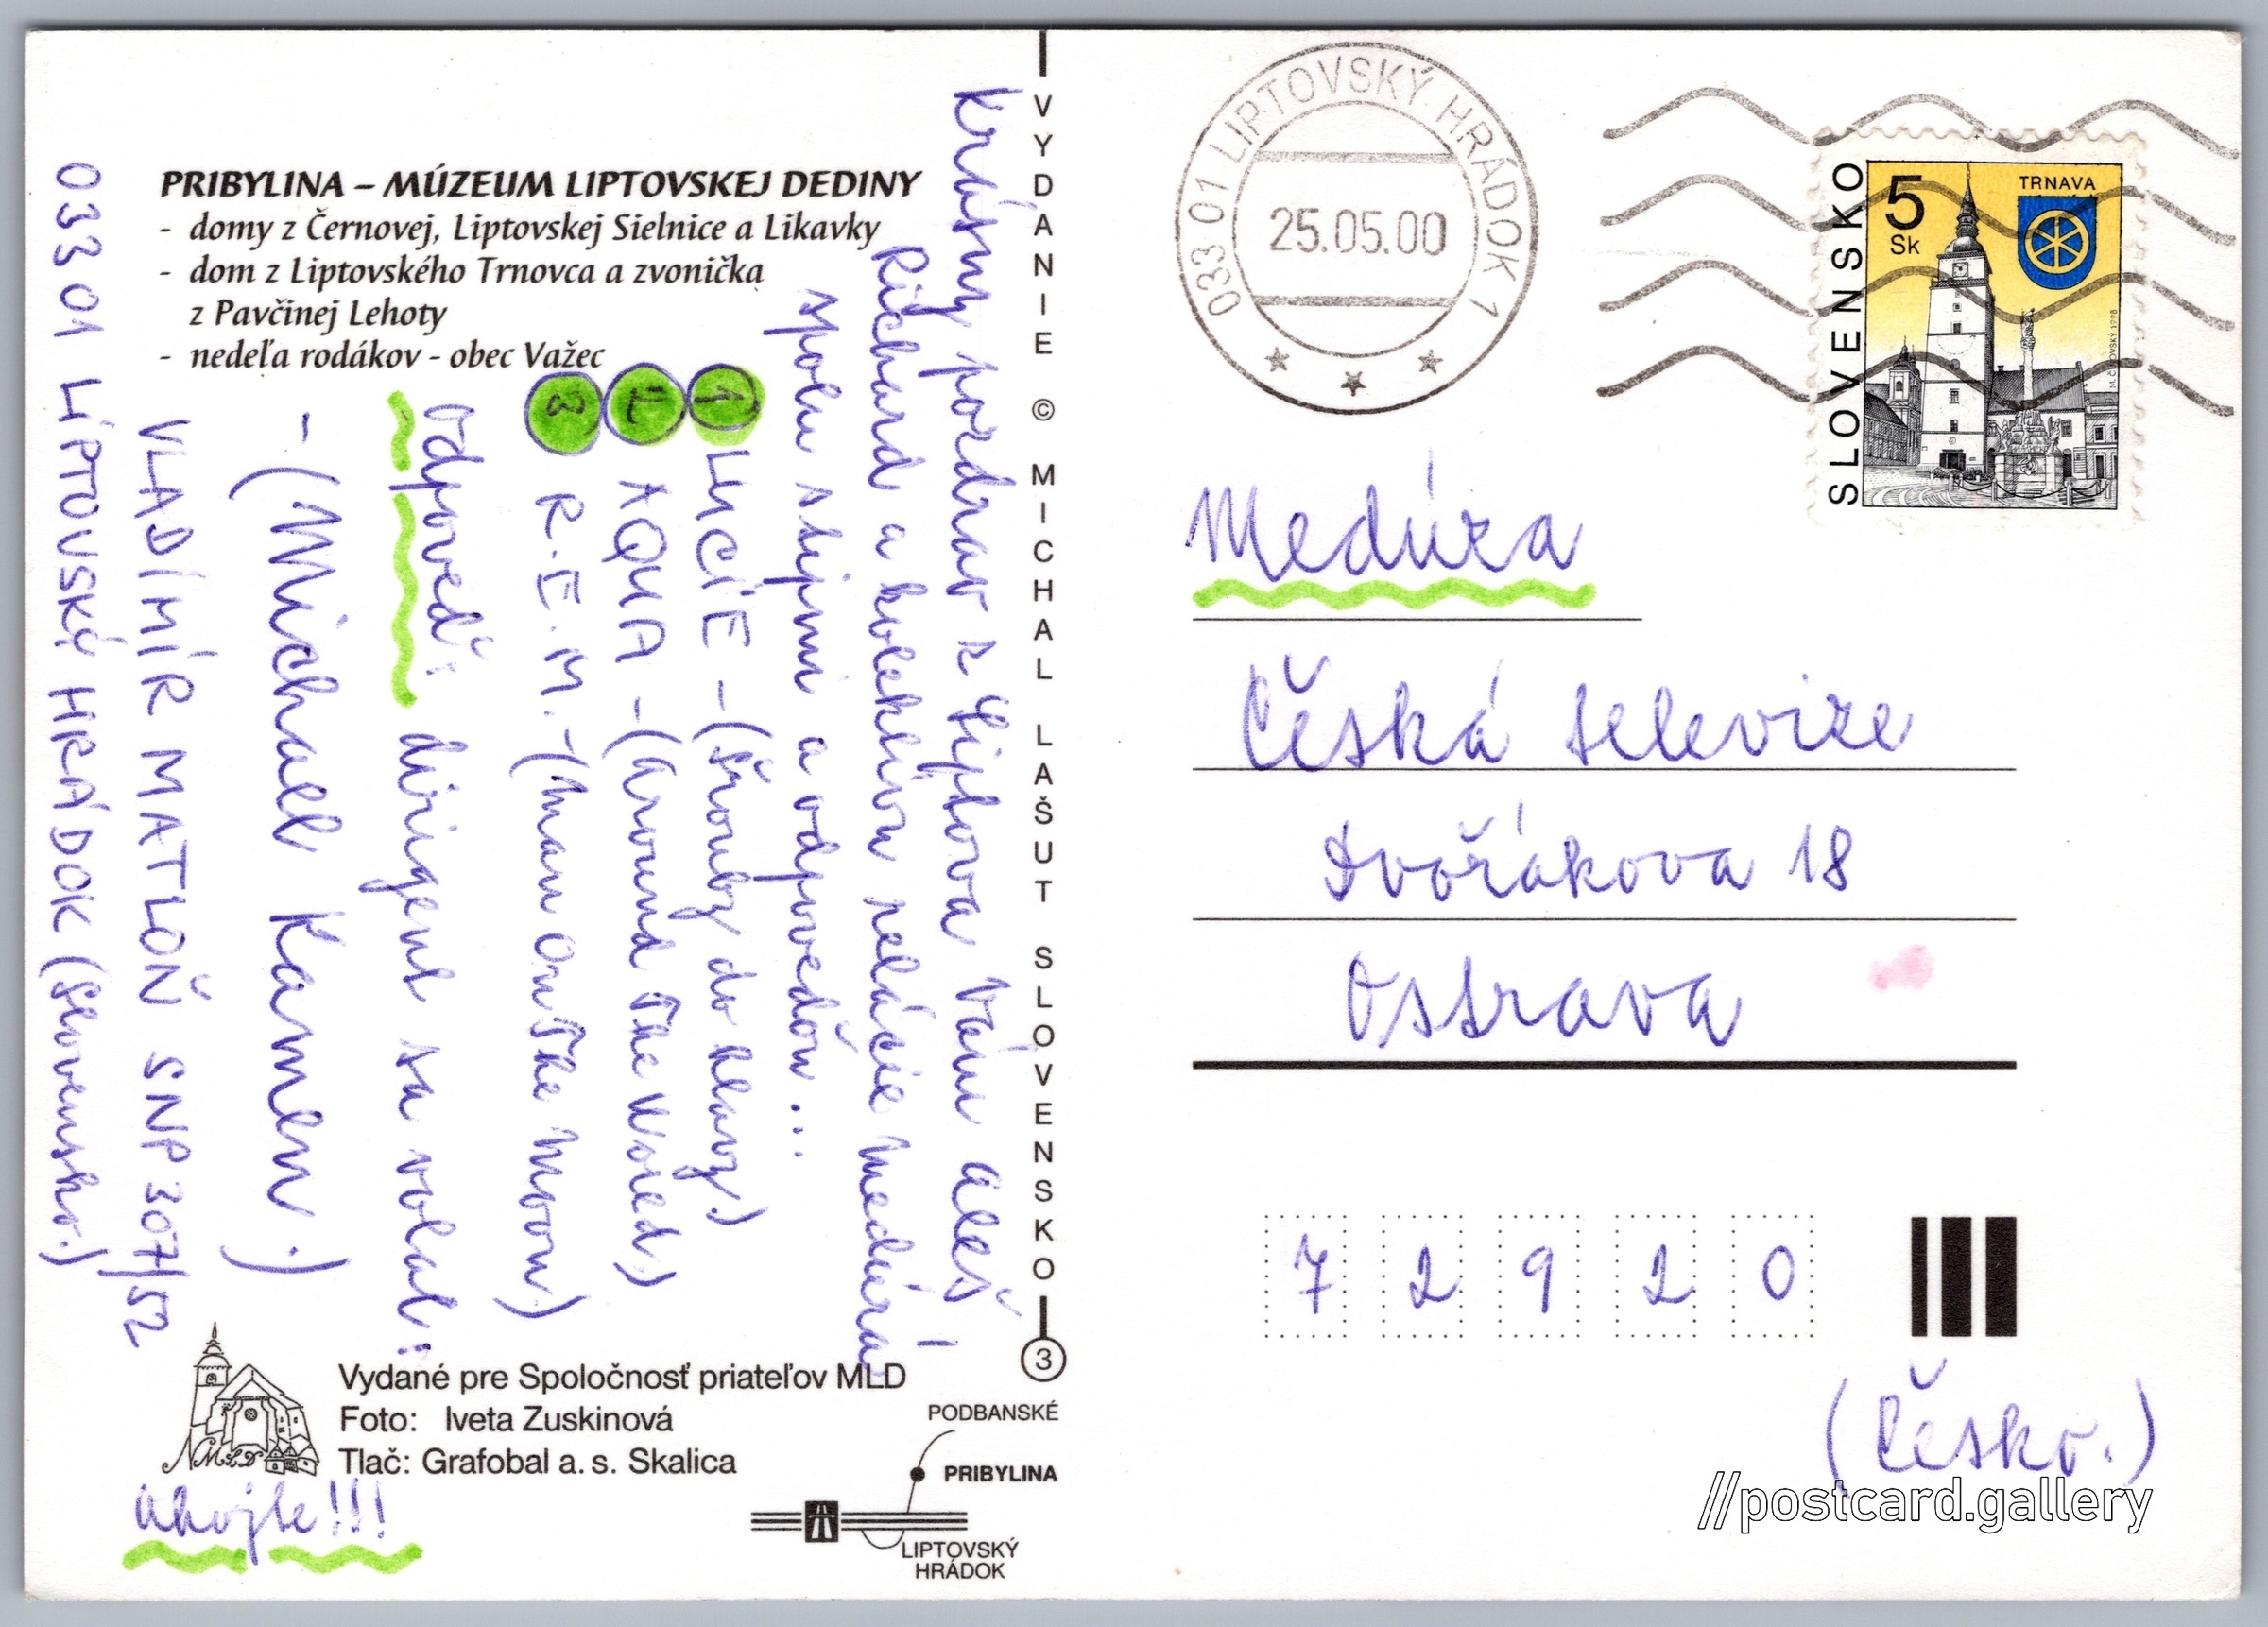 PRIBYLINA – MÚZEUM LIPTOVSKEJ DEDINY
- domy z Černovej, Liptovskej Sielnice a Likavky
- dom z Liptovského Trnovca a zvonička
z Pavčinej Lehoty
- nedeľa rodákov - obec Važec
Krásny pozdrav z Liptova Vám Aleš
Richard a kolektív relácie Medúza!
spolu s tipmi a odpoveďou...
1 LUCIE -(Šrouby do hlavy.)
2 AQUA -(Around The World.)
3 R.E.M. -(Man On The Moon.)
Odpoveď: dirigent sa volal:
- (Michael Kamen.)
VLADIMÍR MATLOŇ SNP 307/52
033 01 LIPTOVSKÝ HRÁDOK (Slovensko.)
Ahojte!!!
Vydané pre Spoločnosť priateľov MLD
Foto: Iveta Zuskinová
Tlač: Grafobal a. s. Skalica
MLD
PODBANSKÉ
PRIBYLINA
LIPTOVSKÝ
HRÁDOK
VYDANIE © MICHAL LAŠUT SLOVENSKO
3
033 01 LIPTOVSKÝ HRÁDOK 1
25.05.00
SLOVENSKO
5
Sk
TRNAVA
Medúza
Česká televize
Dvořákova 18
Ostrava
7 2 9 2 0
(Česko.)
//postcard.gallery